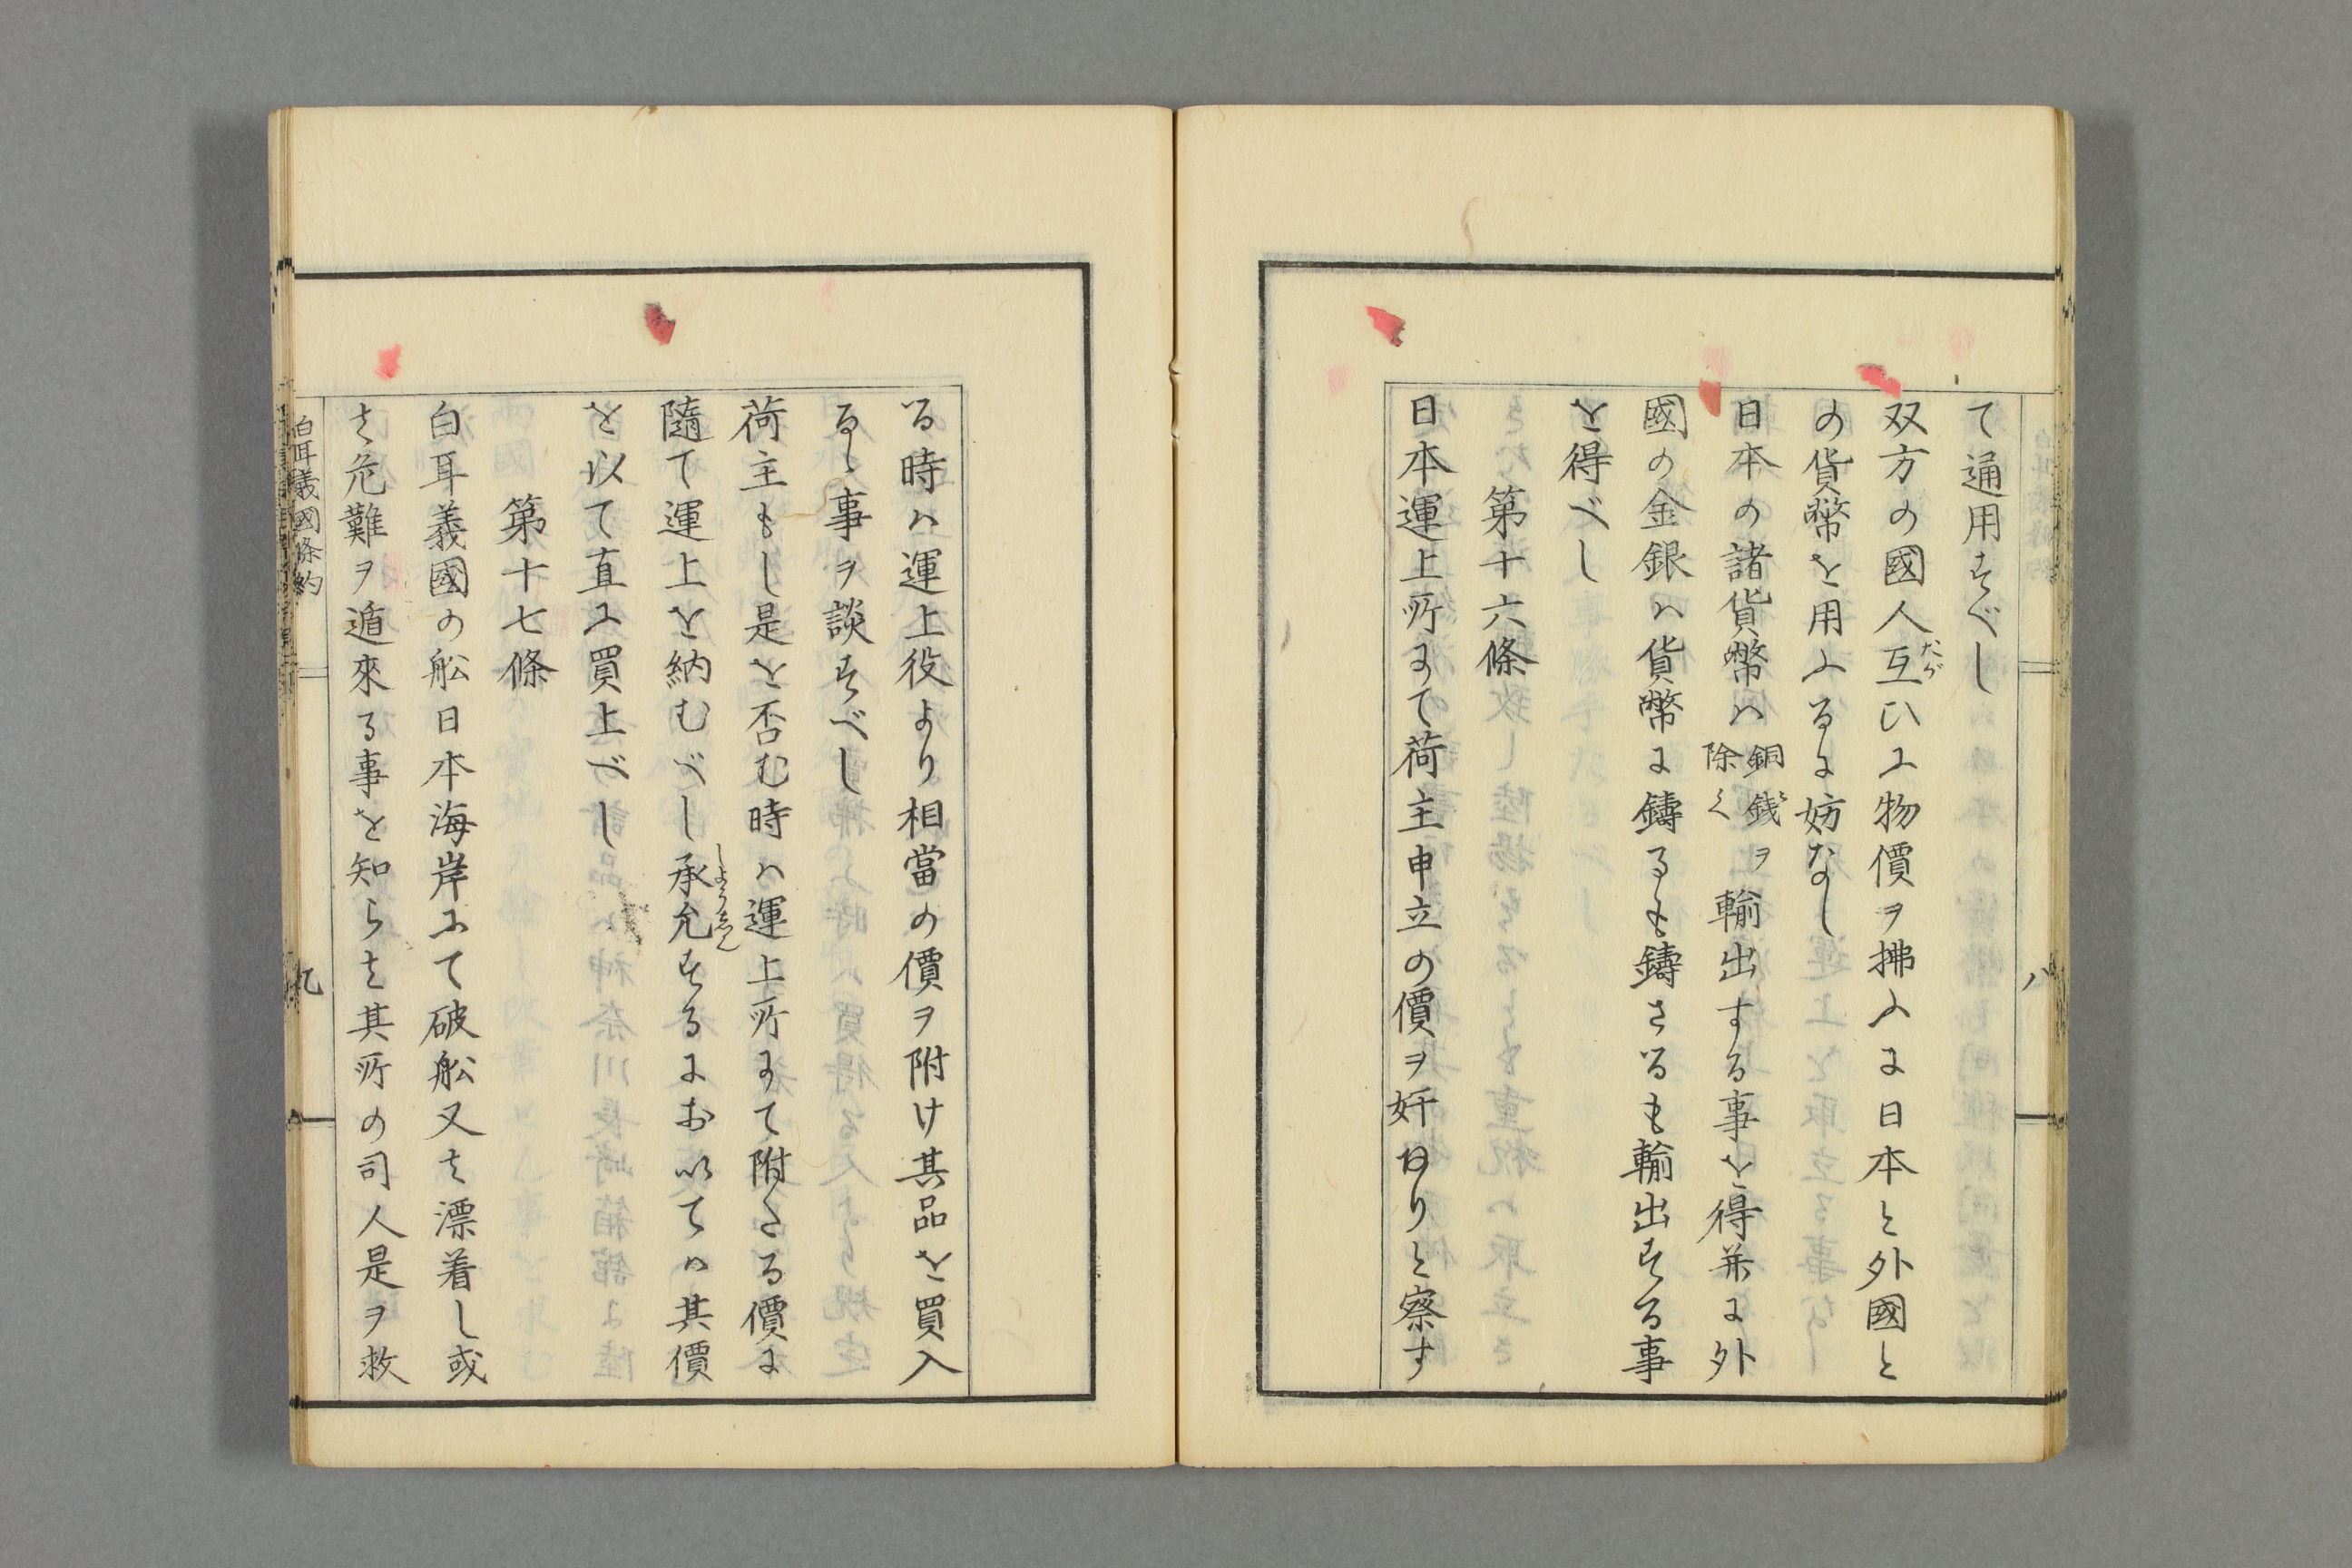 て通用すべし
双方の國人互ひに物價ヲ拂ふに日本と外國と
たが
の貨幣を用ふるに妨なし
日本の諸貨幣ハ銅銭ヲ除く輸出する事を得并に外
國の金銀ハ貨幣に鑄るも鑄さるも輸出する事
を得べし
第十六條
日本運上所にて荷主申立の價ヲ奸曰りと察す
八
る時ハ運上役より相當の價ヲ附け其品を買入
るゝ事ヲ談すべし
荷主もし是を否む時ハ運上所にて附たる價に
隨て運上を納むべし承允するにおいてハ其價
しようゐん
を以て直に買上べし
第十七條
白耳義國の舩日本海岸にて破舩又は漂着し或
は危難ヲ遁來る事を知らは其所の司人是ヲ救
白耳義國條約
九